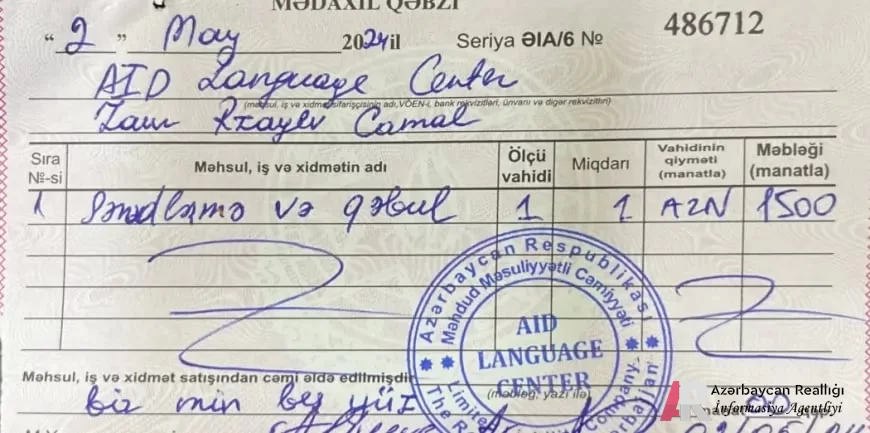 MƏDAXİL QƏBZİ
" 2 " May 2024 il Seriya ƏİA/6 № 486712
AID Language Center
(məhsul, iş və xidmət sifarişçisinin adı, VÖEN-i, bank rekvizitləri, ünvanı və digər rekvizitləri)
Zaur Rzayev Camal
Sıra №-si Məhsul, iş və xidmətin adı Ölçü vahidi Miqdarı Vahidinin qiyməti (manatla) Məbləği (manatla)
1 Sənədləmə və qəbul 1 1 AZN 1500
Azərbaycan Respublikası
Məhdud Məsuliyyətli Cəmiyyəti
AID
LANGUAGE
CENTER
Limited Company
The Azerbaijan
Məhsul, iş və xidmət satışından cəmi əldə edilmişdir
bir min beş yüz
(məbləğ, yazı ilə)
manat 00 qəp.
Azərbaycan Reallığı
İnformasiya Agentliyi